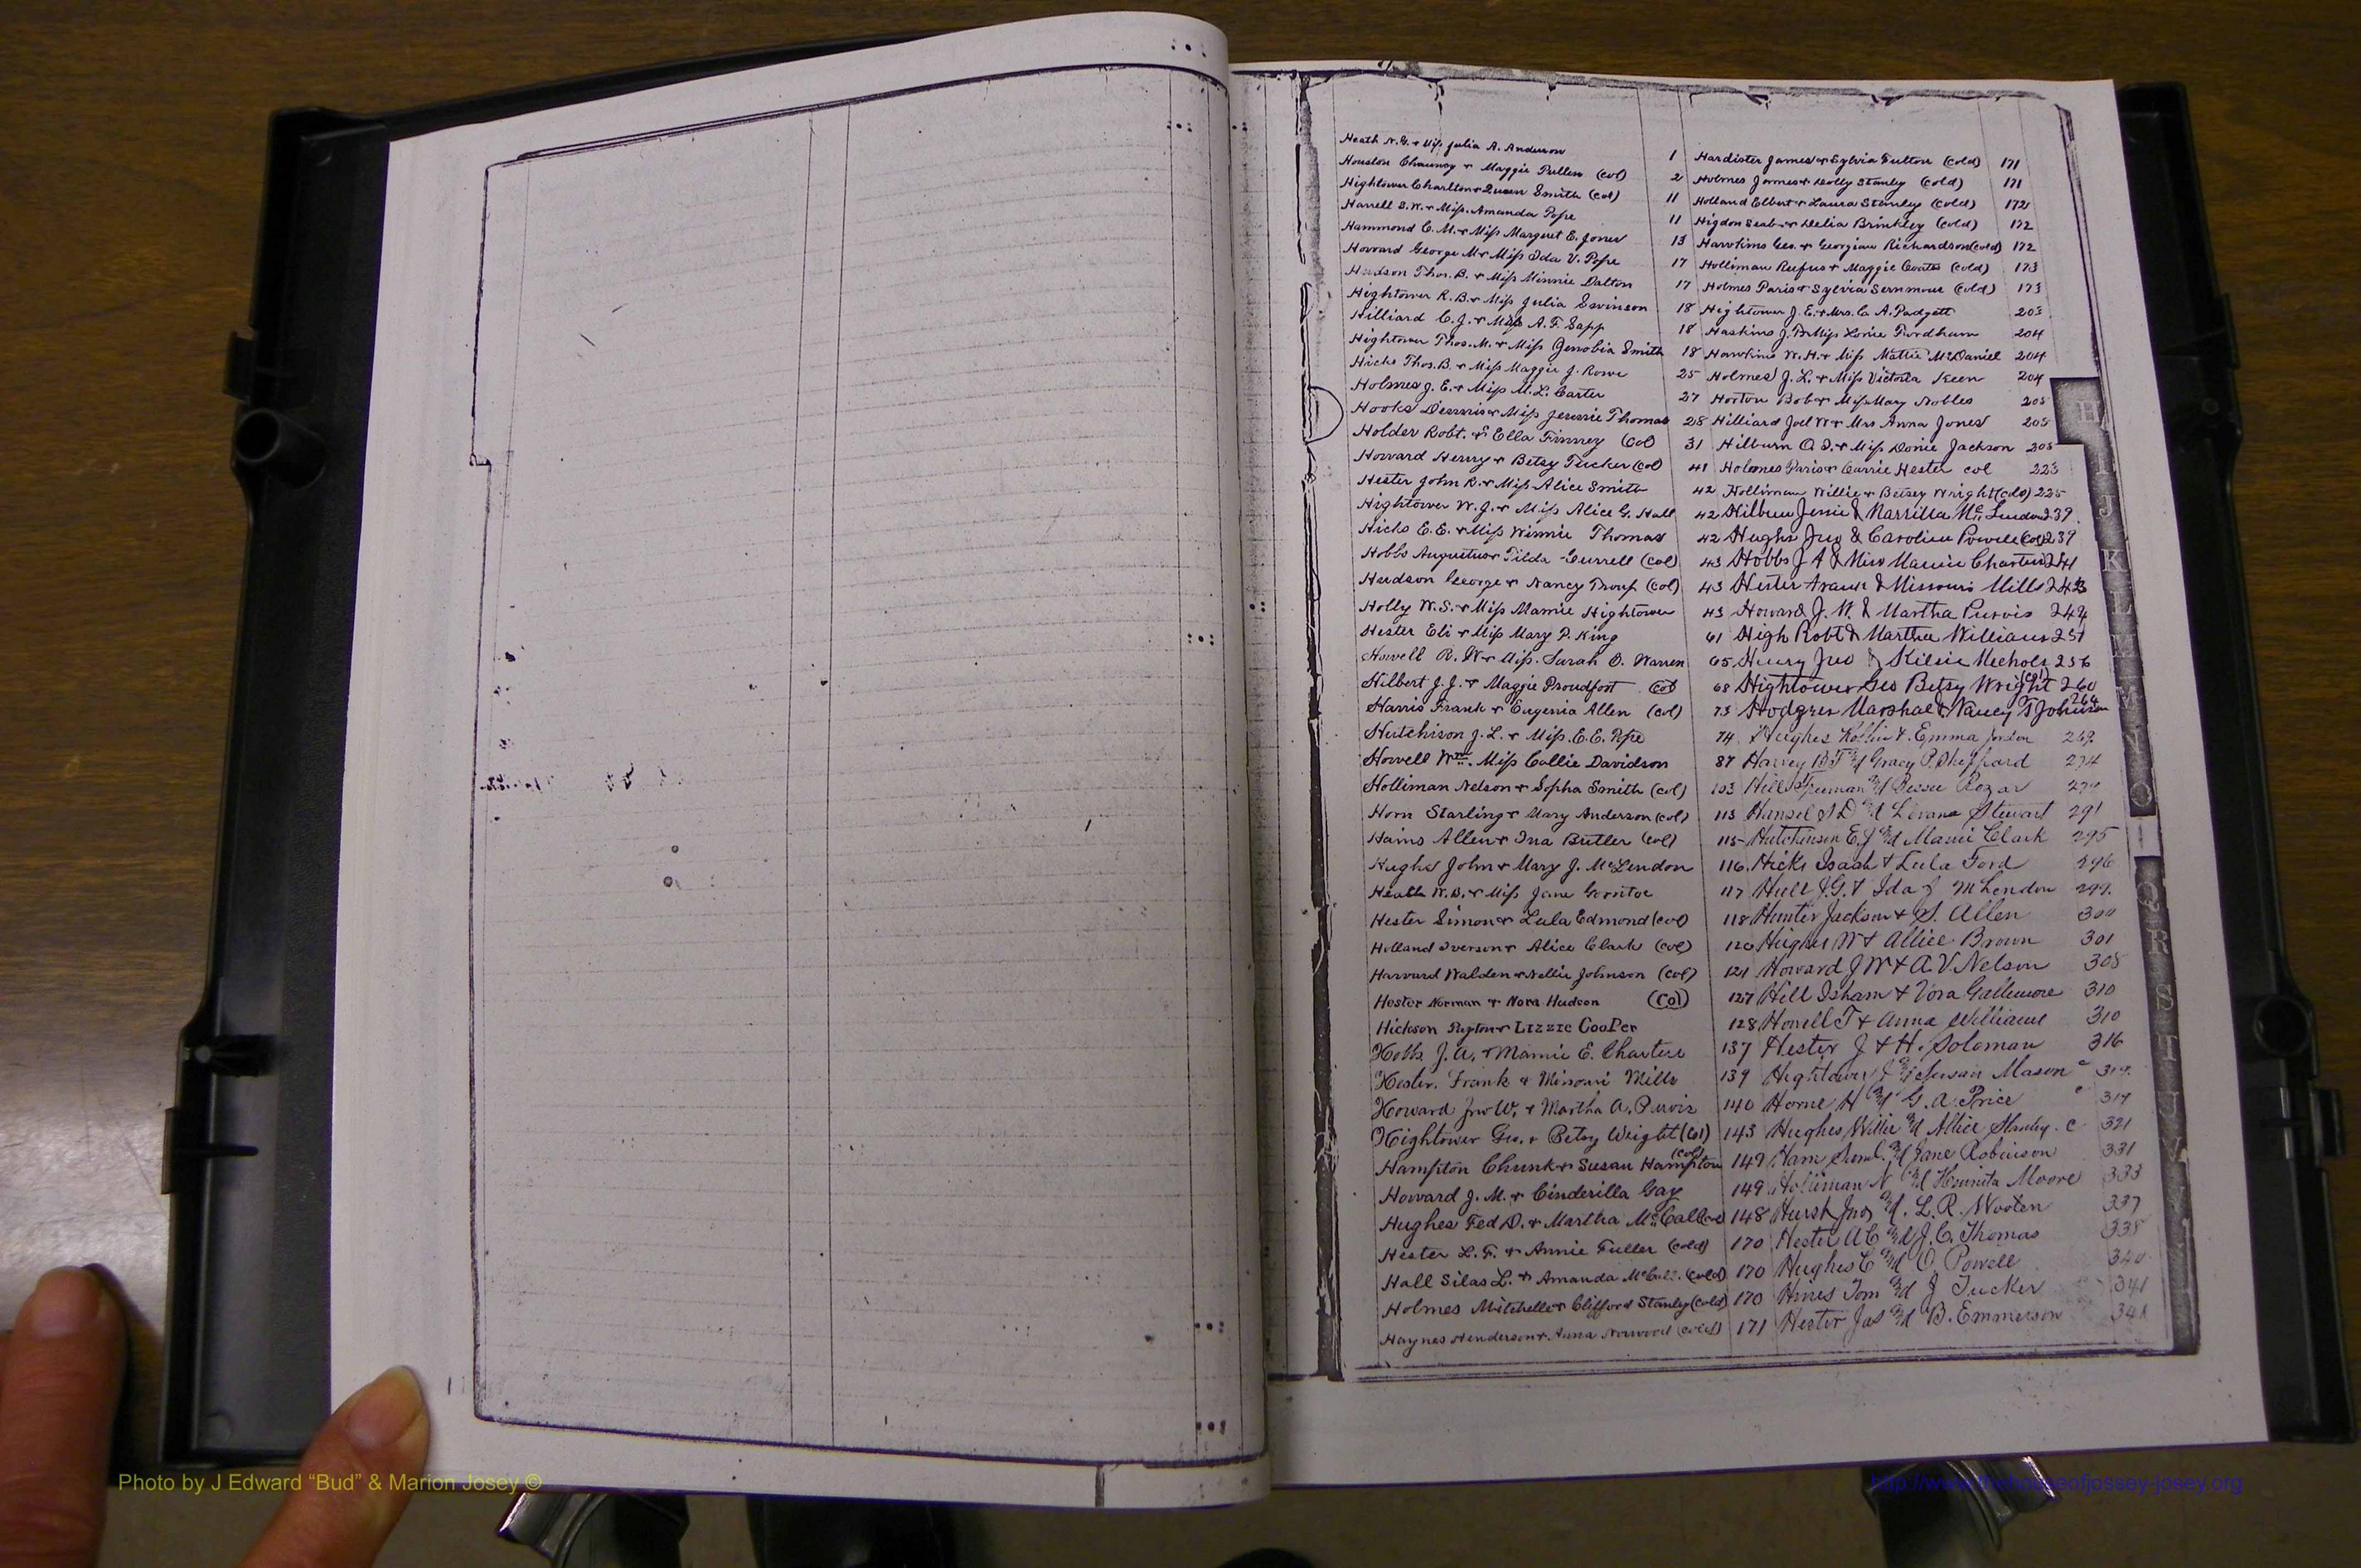 Heath N.G. & Miss Julia A. Anderson 1
Houston Chauncy & Maggie Pullen (col) 2
Hightower Charlton & Queen Smith (col) 11
Harrell S.W. & Miss Amanda Pope 11
Hammond C. M. & Miss Margret E. Jones 13
Howard George M & Miss Ida V. Pope 17
Hudson Thos. B. & Miss Minnie Dalton 17
Hightower R. B. & Miss Julia Swinson 18
Hilliard C. J. & Miss A. F. Sapp 18
Hightower Thos. M. & Miss Genobia Smith 18
Hicks Thos. B. & Miss Maggie J. Rowe 25
Holmes J. E. & Miss M. L. Carter 27
Hooks & Miss Jennie Thomas 28
Holder Robt. & Ella Finney (col) 31
Howard Henry & Betsy Tucker (col) 41
Hester John R. & Miss Alice Smith 42
Hightower W. J. & Miss Alice G. Hall 42
Hicks E. E. & Miss Winnie Thomas 42
Hobbs Augustus & Tilda (col) 43
Hudson George & Nancy Troup (col) 43
Holly W. S. & Miss Mamie Hightower 43
Hester Eli & Miss Mary P. King 61
Howell R. W & Miss. Sarah O. Warren 65
Hilbert J. J. & Maggie Proudfoot (col) 68
Harris Frank & Eugenia Allen (col) 73
Hutchison J. L. & Miss. E. E. Pope 74
Howell Wm. Miss Callie Davidson 87
Holliman Nelson & Sopha Smith (col) 103
Horn Starling & Mary Anderson (col) 113
Hains Allen & Ina Butler (col) 115
Hughs John & Mary J. McLendon 116
Heath W. D. & Miss Jane 117
Hester Simon & Lula Edmond (col) 118
Holland Iverson & Alice Clark (col) 120
Harvard Walden & Nellie Johnson (col) 121
Hester Norman & Nora Hudson (Col) 127
Hickson & Lizzie Cooper 128
Hobbs J. A. & Mamie E. Charters 137
Hester. Frank & Missouri Mills 139
Howard Jno W. & Martha A. Purvis 140
Hightower Geo. & Betsy Wright (Col) 143
Hampton Chunk & Susan Hampton (col) 149
Howard J. M. & Cinderilla Gay 149
Hughes Fed D. & Martha 148
Hester L. F. & Annie Fuller (cold) 170
Hall Silas L. & Amanda (cold) 170
Holmes Mitchell & Clifford Stanley (cold) 170
Haynes Henderson & Anna Norwood (cold) 171
Hardister James & Sylvia Fulton (cold) 171
Holmes James & Dolly Stanley (cold) 171
Holland Elbert & Laura Stanley (cold) 172
Higdon Seab & Delia Brinkley (cold) 172
Hawkins Geo. & Georgian Richardson (cold) 172
Holliman Rufus & Maggie Coats (cold) 173
Holmes Paris & Sylvia (cold) 173
Hightower J. E. & Mrs. C. A. Padgett 203
Haskins J. & Miss Lonie Fordham 204
Hawkins W. H. & Miss Mattie McDaniel 204
Holmes J. L. & Miss Victoria Keen 204
Horton Bob & Miss Mary Nobles 205
Hilliard Joel W & Mrs Anna Jones 205
Hilburn O. I. & Miss Donie Jackson 205
Holmes Paris & Carrie Hester col 223
Holliman Willie & Betsey Wright (cold) 225
Hilbun Jessie & Narrilla 239
Hughs Jno & Caroline Powell (col) 239
Hobbs J A & Miss Mamie Charters 241
Hester Frank & Missouri Mills 243
Howard J. W. & Martha Purvis 244
High Robt & Martha Williams 251
Henry Jno & Nichols 256
Hightower Geo Betsy Wright (col) 260
Hodges Marshal & Nancy T Johnson 264
Hughes & Emma Jordan 269
Harvey & Gracy P. Sheppard 274
Hill & Bessie Rozar
Hansel S D & Stewart 291
Hutchinson E. J & Mamie Clark 295
Hicks Isaah & Lula Ford 296
Hull J. G. & Ida J McLendon
Hunter Jackson & S. Allen 300
Hughes W & Allice Brown 301
Howard J W & A. V. Nelson 308
Hill Isham & Vora Gallimore 310
Howell T & Anna Williams 310
Hester J & H. Soloman 316
Hightower J & Susan Mason c
Horne H & G. A. Price c 317
Hughes Willie & Allice Stanley. c 321
Ham Saml. & Jane Robinson 331
Holliman N & Moore 333
Hurst Jno & L. R. Wooten 337
Hester A C & J. C. Thomas 338
Hughes C & O Powell 340
Hines Tom & J Tucker 341
Hester Jas & B. Emmerson 341
H
I
J
K
L
M
N
O
Q
R
S
T
U
V
Photo by J Edward “Bud” & Marion Josey ©
http://www.thehouseofjossey-josey.org